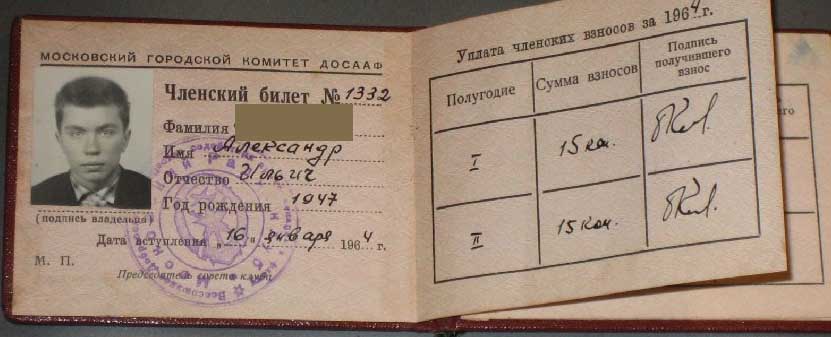 МОСКОВСКИЙ ГОРОДСКОЙ КОМИТЕТ ДОСААФ
Членский билет № 1332
Фамилия
Имя Александр
Отчество Ильич
Год рождения 1947
(подпись владельца)
Дата вступления „16" января 1964 г.
М. П.
Председатель совета клуба
Уплата членских взносов за 1964 г.
Полугодие
Сумма взносов
Подпись получившего взнос
I
15 коп.
II
15 коп.